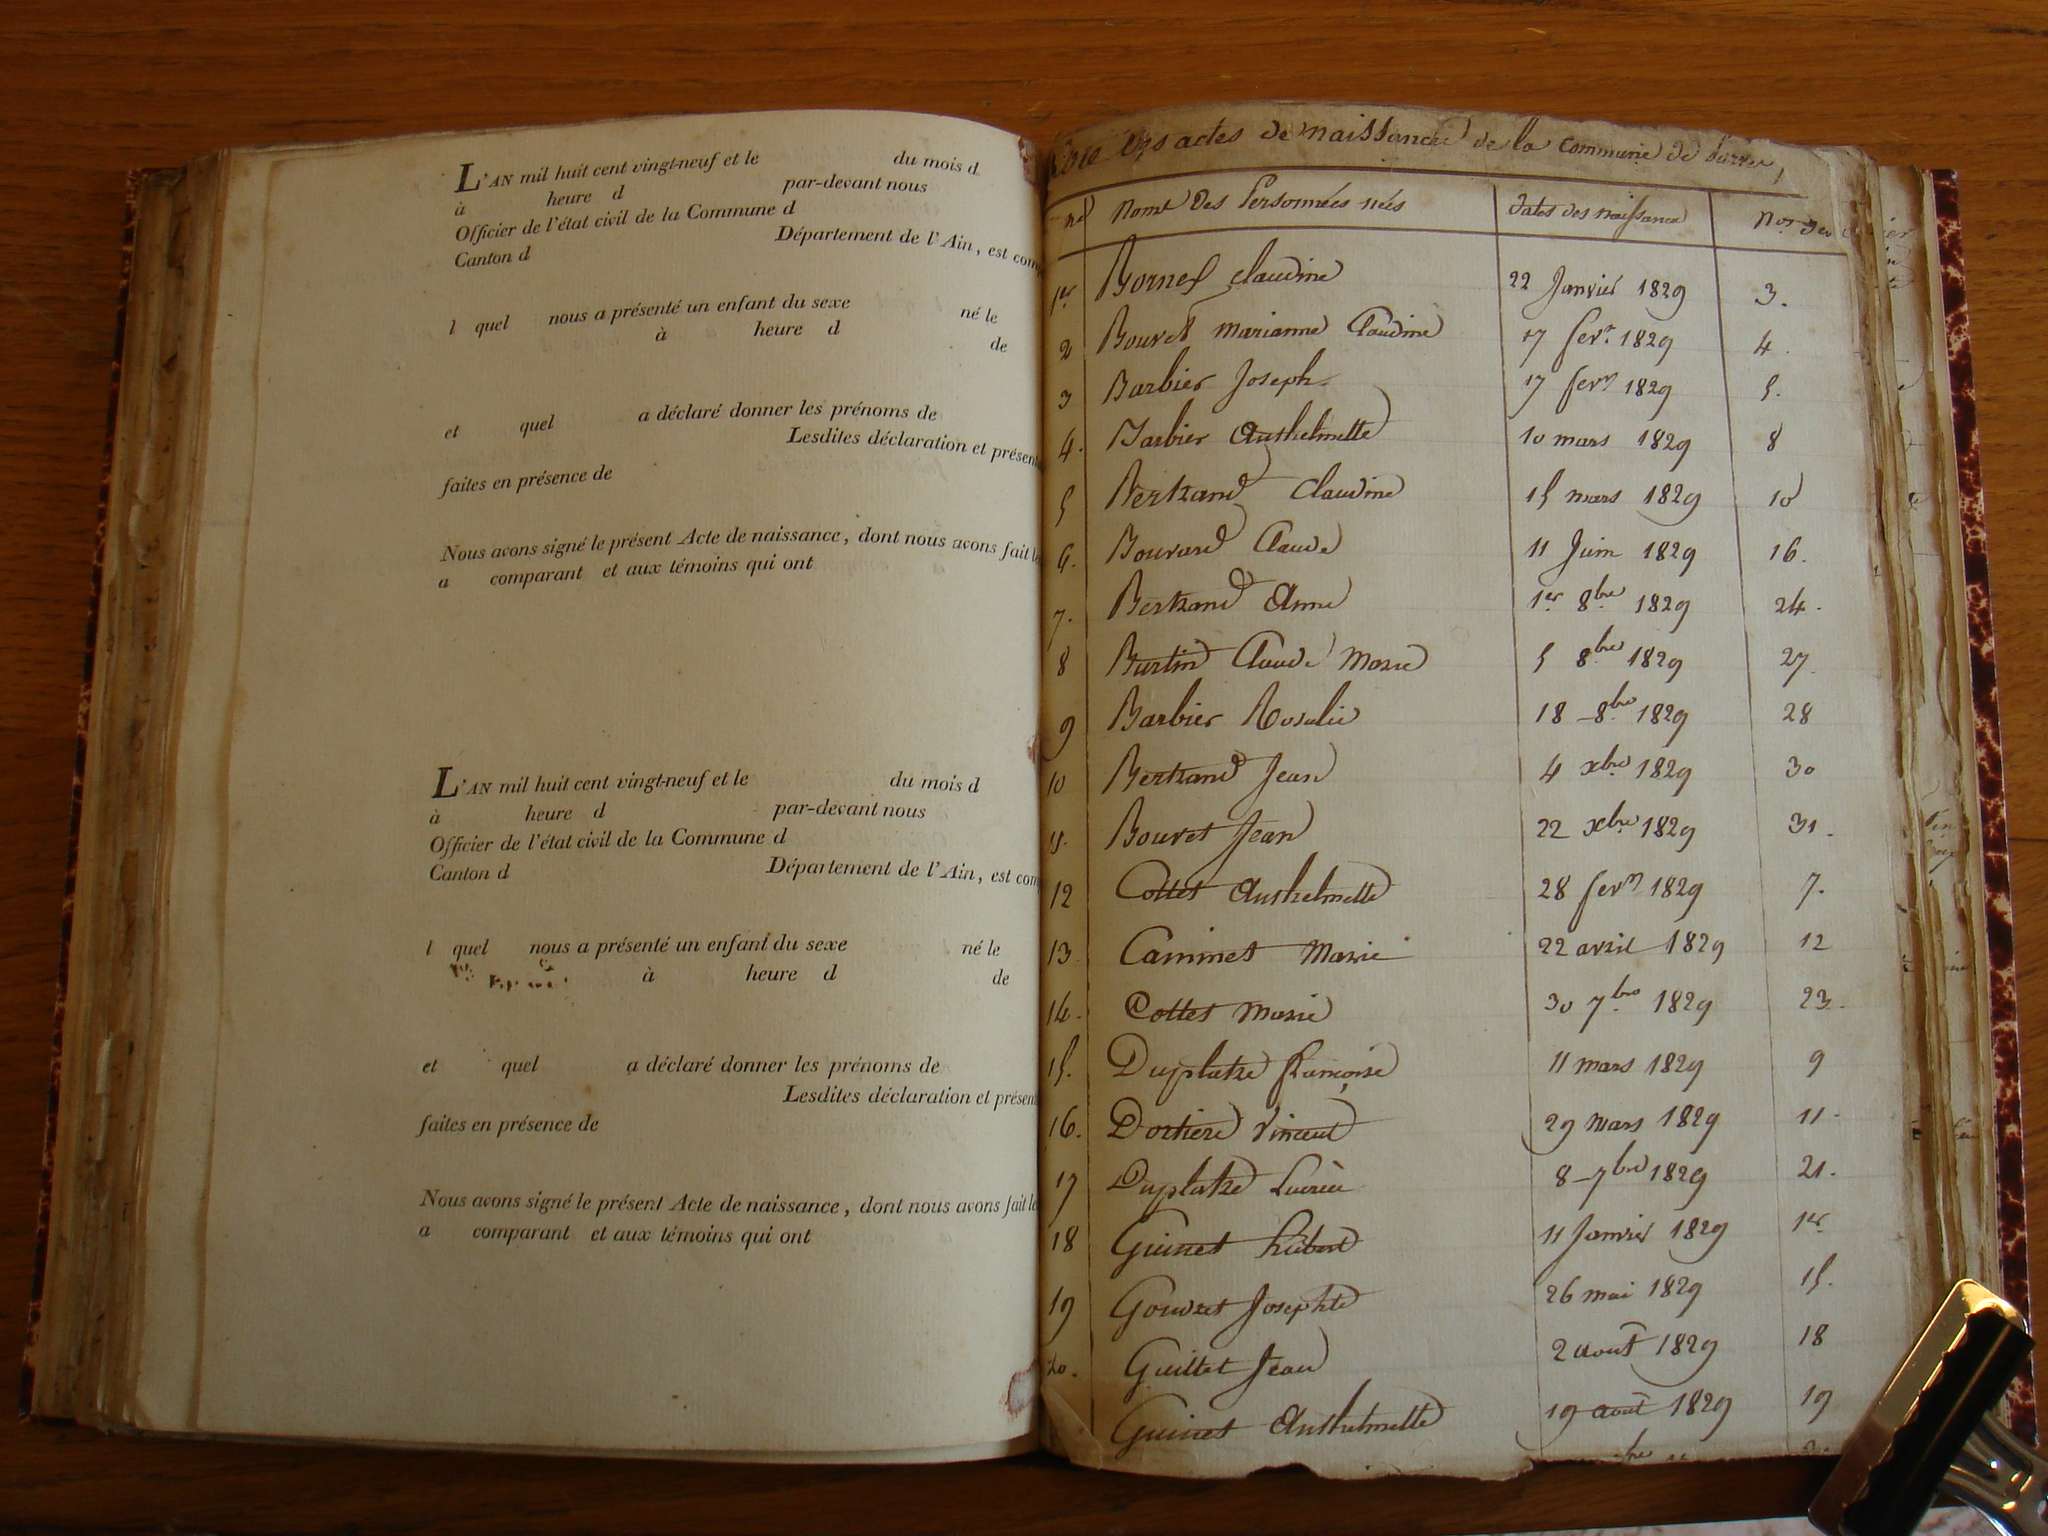 L'AN mil huit cent vingt-neuf et le du mois d
à heure d par-devant nous
Officier de l'état civil de la Commune d
Canton d Département de l'Ain, est comp
l quel nous a présenté un enfant du sexe né le
à heure d de
et quel a déclaré donner les prénoms de
Lesdites déclaration et présent
faites en présence de
Nous avons signé le présent Acte de naissance, dont nous avons fait le
a comparant et aux témoins qui ont
L'AN mil huit cent vingt-neuf et le du mois d
à heure d par-devant nous
Officier de l'état civil de la Commune d
Canton d Département de l'Ain, est com
l quel nous a présenté un enfant du sexe né le
à heure d de
et quel a déclaré donner les prénoms de
Lesdites déclaration et présent
faites en présence de
Nous avons signé le présent Acte de naissance, dont nous avons fait le
a comparant et aux témoins qui ont
des actes de naissance de la commune de
nos Noms des Personnées nées dates des naissance Nos des
1er Bornet Claudine 22 Janvier 1829 3.
2 Bouvet Marianne Claudine 17 fevr 1829 4.
3 Barbier Joseph 17 fevr 1829 5.
4. Barbier Anthelmette 10 mars 1829 8
5 Bertrand Claudine 15 mars 1829 10
6. Bouvard Claude 11 Juin 1829 16.
7. Bertrand Anne 1er 8bre 1829 24.
8 Burtin Claude Marie 5 8bre 1829 27
9 Barbier Rosalie 18 8bre 1829 28
10 Bertrand Jean 4 xbre 1829 30
11. Bouvet Jean 22 xbre 1829 31.
12 Cottet Anthelmette 28 fevr 1829 7.
13 Caminet Marie 22 avril 1829 12
14. Cottet Marie 30 7bre 1829 23.
15. Duplatre françoise 11 mars 1829 9
16. Vincent 29 mars 1829 11.
17 Duplatre 8 7bre 1829 21.
18 Guinet hubert 11 Janvier 1829 1er
19 Gouvret Josephte 26 mai 1829 15.
20. Guillet Jean 2 août 1829 18
Guinet Anthelmette 19 août 1829 19